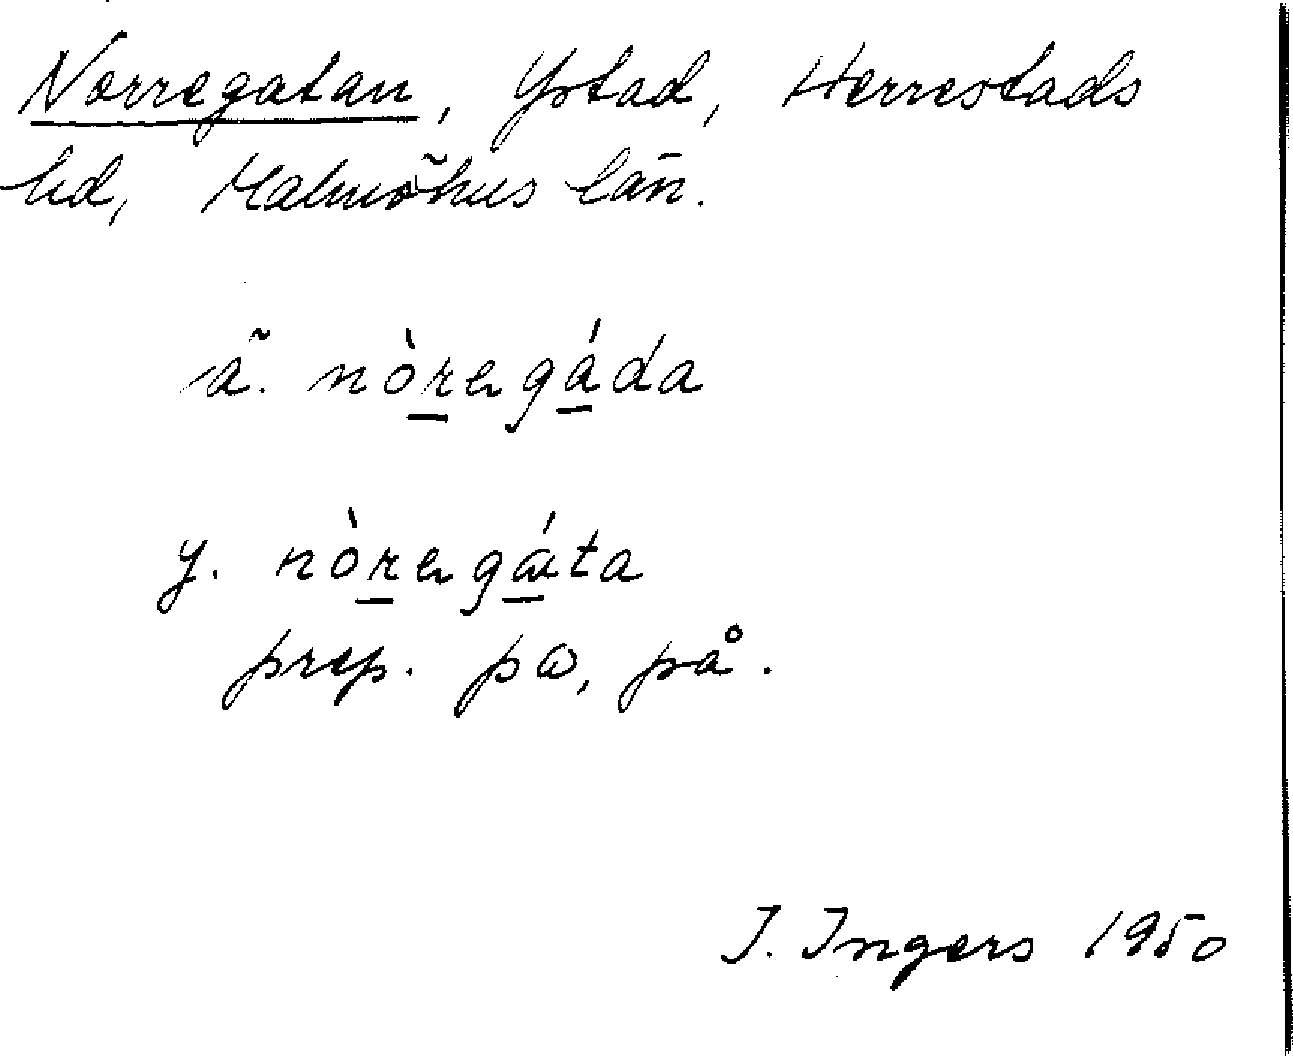 Norregatan, Ystad, Herrestads
hd, Malmöhus län.
ä. nòregáda
y. nòregáta
prep. pa, på.
I. Ingers 1950